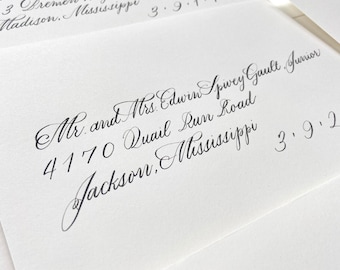 3 Dremon
Madison, Mississippi
3 · 9 · 1
Mr. and Mrs. Edwin Spivey Gault, Junior
4170 Quail Run Road
Jackson, Mississippi
3 · 9 · 2